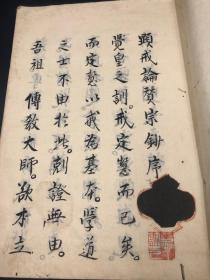 顕戒論賛宗鈔序
覺皇之訓。戒定慧而已矣。
而定慧以戒為基本。學道
之士不由於此。剋證無由。
吾祖傳教大師。欲才立